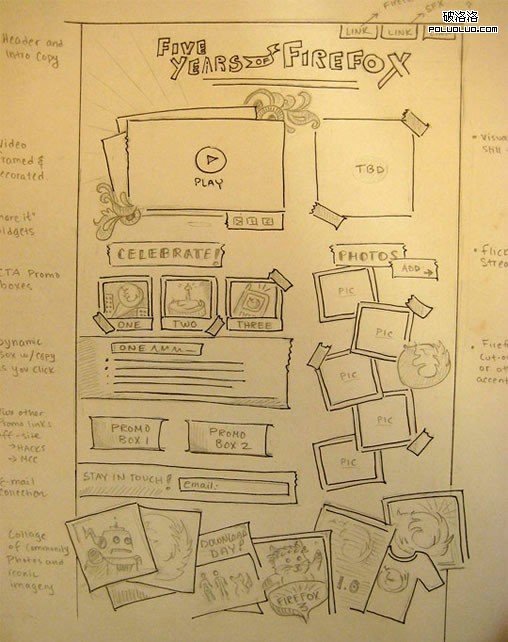 破洛洛
POLUOLUO.COM
LINK
LINK
Header and
Intro Copy
FIVE
YEARS OF FIREFOX
Video
Framed &
Decorated
PLAY
TBD
CELEBRATE!
PHOTOS
ADD →
CTA Promo
Boxes
PIC
PIC
PIC
PIC
PIC
ONE
TWO
THREE
Dynamic
Box w/ copy
as you click
ONE
Two other
Promo links
off-site
→ HACKS
→ MCC
PROMO
BOX 1
PROMO
BOX 2
E-mail
Collection
STAY IN TOUCH!
email:
Collage
of Community
Photos and
Iconic
Imagery
DOWNLOAD
DAY!
FIREFOX
3
1.0
• Flick
Strea
• Firef
cut-o
or ot
accent